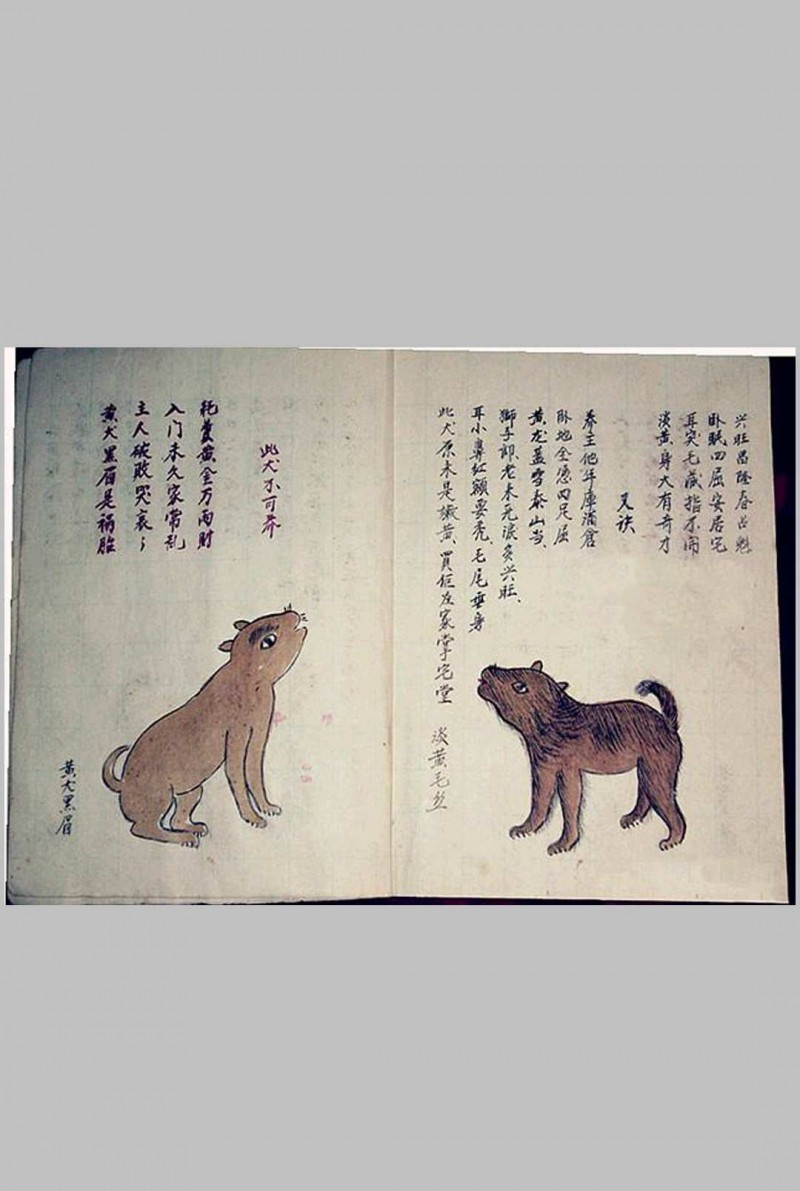 兴旺昌隆春占魁
卧眠四屈安居宅
耳突毛藏指不闹
淡黄身大有奇才
又诀
养主他年库满仓
卧地全凭四足屈
黄龙盖雪泰山当
狮子卻老末无浪多兴旺、
耳小鼻红额要秃、毛尾垂身
此犬原来是 黄、買 在家掌宅堂
淡黄毛丝
此犬不可养
耗尽黄金万两财
入门未久家常乱
主人破败哭哀々
黄犬黑眉是祸胎
黄犬黑眉